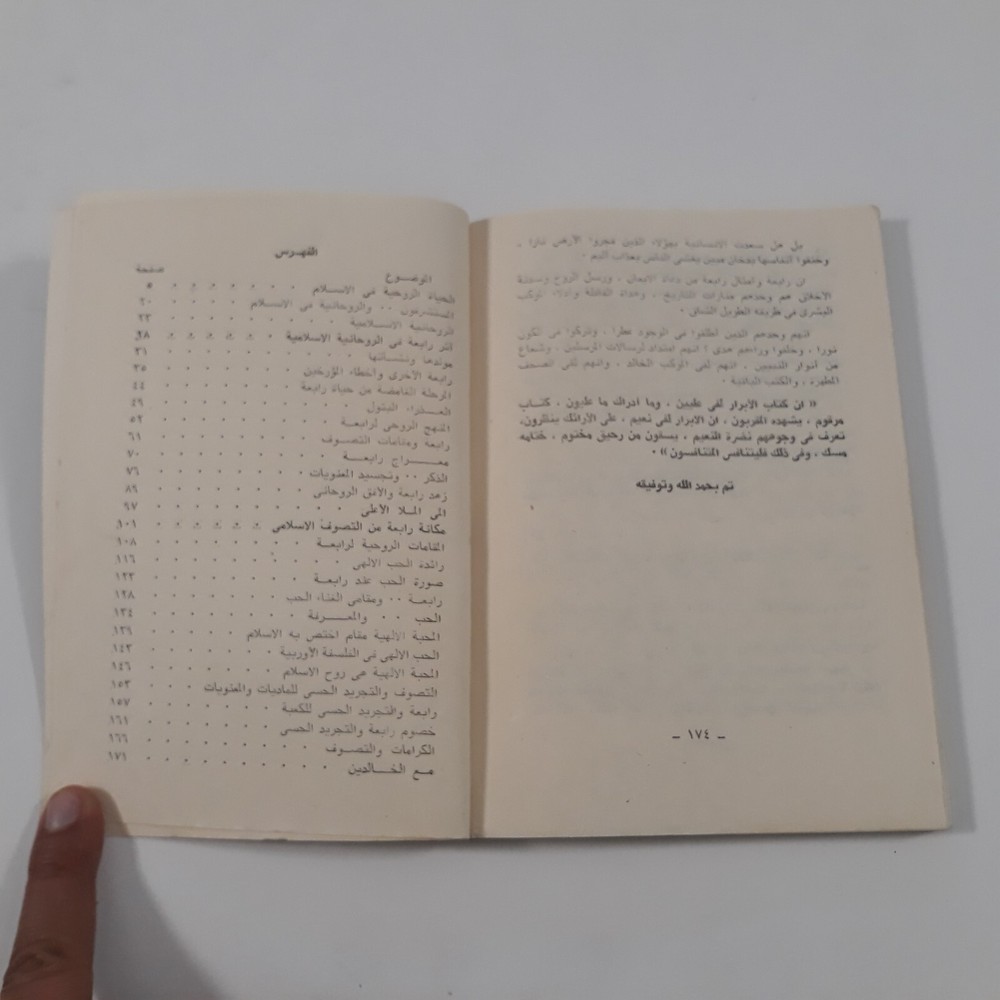 بل هل سعدت الانسانية بهؤلاء الذين فجروا الأرض نارا ،
وخنقوا أنفاسها بدخان مبين يغشى الناس بعذاب أليم .
ان رابعة وأمثال رابعة من دعاة الايمان ، ورسل الروح وسدنة
الأخلاق هم وحدهم منارات التاريخ ، وهداة القافلة وأدلاء الموكب
البشرى فى طريقه الطويل الشاق .
انهم وحدهم الذين أطلقوا فى الوجود عطرا ، وتركوا فى الكون
نورا ، وخلفوا وراءهم هدى ! انهم امتداد لرسالات المرسلين ، وشعاع
من أنوار النبيين ، انهم لفى الموكب الخالد ، وانهم لفى الصحف
المطهرة ، والكتب الباقية .
« ان كتاب الأبرار لفى عليين ، وما أدراك ما عليون ، كتاب
مرقوم ، يشهده المقربون ، ان الأبرار لفى نعيم ، على الأرائك ينظرون،
تعرف فى وجوههم نضرة النعيم ، يسقون من رحيق مختوم ، ختامه
مسك ، وفى ذلك فليتنافس المتنافسون » .
تم بحمد الله وتوفيقه
ـ ١٧٤ ـ
الفهرس
الموضوع صفحة
الحياة الروحية فى الاسلام ٥
المستشرقون .. والروحانية فى الاسلام ٢٠
الروحانية الاسلامية ٢٣
أثر رابعة فى الروحانية الاسلامية ٢٨
مولدها ونشأتها ٣١
رابعة الأخرى وأخطاء المؤرخين ٣٥
المرحلة الغامضة من حياة رابعة ٤٤
العذراء البتول ٤٩
المنهج الروحى لرابعة ٥٢
رابعة ومقامات التصوف ٦١
معراج رابعة ٧٠
الذكر .. وتجسيد المعنويات ٧٦
زهد رابعة والأفق الروحانى ٨٩
الى الملا الأعلى ٩٧
مكانة رابعة من التصوف الاسلامى ١٠١
المقامات الروحية لرابعة ١٠٨
رائدة الحب الالهى ١١٦
صورة الحب عند رابعة ١٢٢
رابعة .. ومقامى الفناء الحب ١٢٨
الحب .. والمعرفة ١٣٤
المحبة الالهية مقام اختص به الاسلام ١٣٩
الحب الالهى فى الفلسفة الأوربية ١٤٢
المحبة الالهية هى روح الاسلام ١٤٦
التصوف والتجريد الحسى للماديات والمعنويات ١٥٣
رابعة والتجريد الحسى للكعبة ١٥٧
خصوم رابعة والتجريد الحسى ١٦١
الكرامات والتصوف ١٦٦
مع الخالدين ١٧١